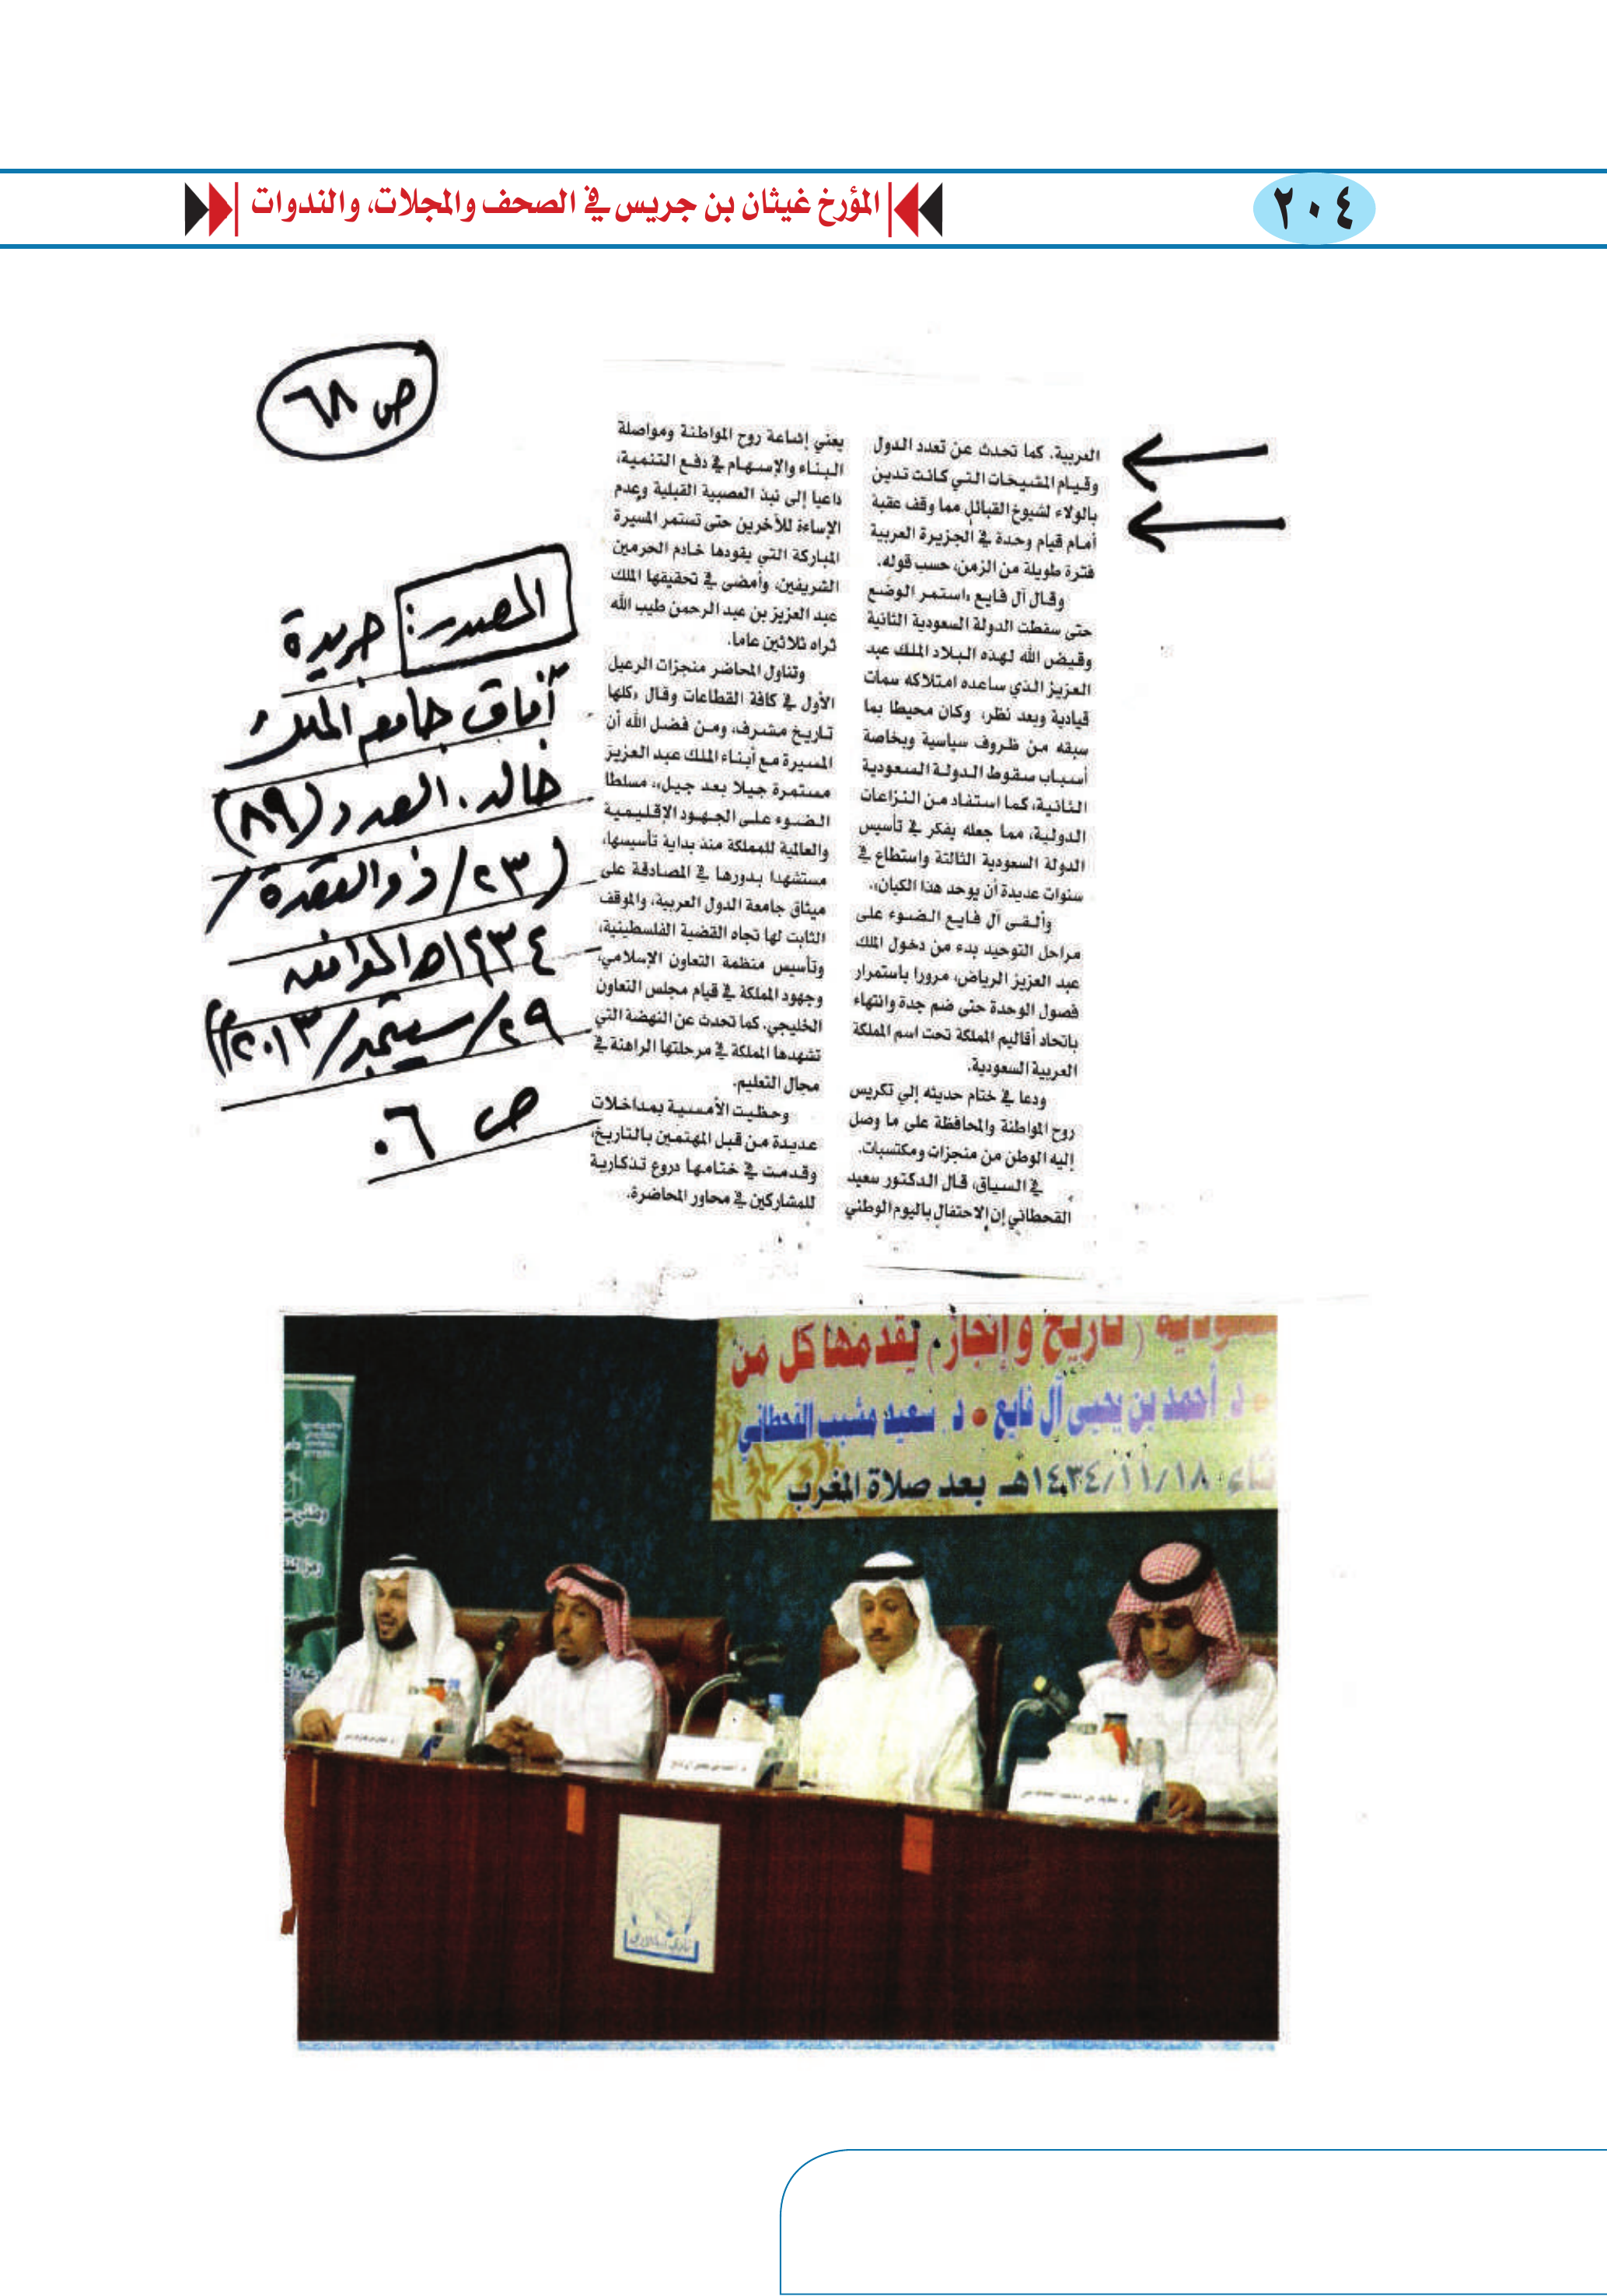 ٢٠٤
المؤرخ غيثان بن جريس في الصحف والمجلات، والندوات
ص ٦٨
العربية. كما تحدث عن تعدد الدول
وقيام المشيخات التي كانت تدين
بالولاء لشيوخ القبائل مما وقف عقبة
أمام قيام وحدة في الجزيرة العربية
فترة طويلة من الزمن، حسب قوله.
وقال آل فايع «استمر الوضع
حتى سقطت الدولة السعودية الثانية
وقيض الله لهذه البلاد الملك عبد
العزيز الذي ساعده امتلاكه سمات
قيادية وبعد نظر، وكان محيطا بما
سبقه من ظروف سياسية وبخاصة
أسباب سقوط الدولة السعودية
الثانية، كما استفاد من النزاعات
الدولية، مما جعله يفكر في تأسيس
الدولة السعودية الثالثة واستطاع في
سنوات عديدة أن يوحد هذا الكيان».
وألقى آل فايع الضوء على
مراحل التوحيد بدء من دخول الملك
عبد العزيز الرياض، مرورا باستمرار
فصول الوحدة حتى ضم جدة وانتهاء
باتحاد أقاليم المملكة تحت اسم المملكة
العربية السعودية.
ودعا في ختام حديثه إلي تكريس
روح المواطنة والمحافظة على ما وصل
إليه الوطن من منجزات ومكتسبات.
في السياق، قال الدكتور سعيد
القحطاني إن الاحتفال باليوم الوطني
يعني إشاعة روح المواطنة ومواصلة
البناء والإسهام في دفع التنمية،
داعيا إلى نبذ العصبية القبلية وعدم
الإساءة للآخرين حتى تستمر المسيرة
المباركة التي يقودها خادم الحرمين
الشريفين، وأمضى في تحقيقها الملك
عبد العزيز بن عبد الرحمن طيب الله
ثراه ثلاثين عاما.
وتناول المحاضر منجزات الرعيل
الأول في كافة القطاعات وقال «كلها
تاريخ مشرف، ومن فضل الله أن
المسيرة مع أبناء الملك عبد العزيز
مستمرة جيلا بعد جيل»، مسلطا
الضوء على الجهود الإقليمية
والعالمية للمملكة منذ بداية تأسيسها،
مستشهدا بدورها في المصادقة على
ميثاق جامعة الدول العربية، والموقف
الثابت لها تجاه القضية الفلسطينية،
وتأسيس منظمة التعاون الإسلامي،
وجهود المملكة في قيام مجلس التعاون
الخليجي. كما تحدث عن النهضة التي
تشهدها المملكة في مرحلتها الراهنة في
مجال التعليم.
وحظيت الأمسية بمداخلات
عديدة من قبل المهتمين بالتاريخ،
وقدمت في ختامها دروع تذكارية
للمشاركين في محاور المحاضرة.
المصدر: جريدة
آفاق جامعة الملك
خالد. العدد (٨٩)
(٢٣/ ذو القعدة/
١٤٣٤هـ الموافق
٢٩/سبتمبر/٢٠١٣م)
ص ٠٦
(تاريخ وإنجاز) يقدمها كل من
د. أحمد بن يحيى آل فايع • د. سعيد مشبب القحطاني
١٤٣٤/١١/١٨هـ بعد صلاة المغرب